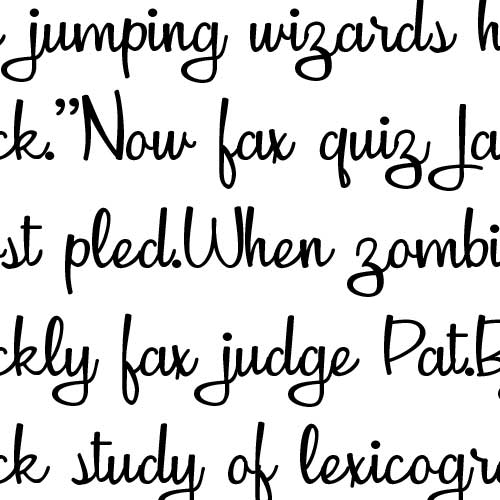 jumping wizards h
ck.”Now fax quiz Ja
st pled.When zombi
ckly fax judge Pat.B
ck study of lexicogr